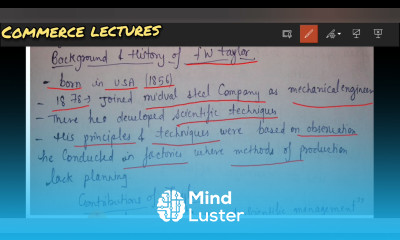 COMMERCE LECTURES
Background & History of F W Taylor.
- born in USA (1856)
- 1878 → joined midval steel Company as mechanical engineer
- There heo developed scientific techniques
- His principles & techniques were based on obseration
he Conducted in factories where methods of production
lack planning
Contributions of
scientific management"
Mind
Luster